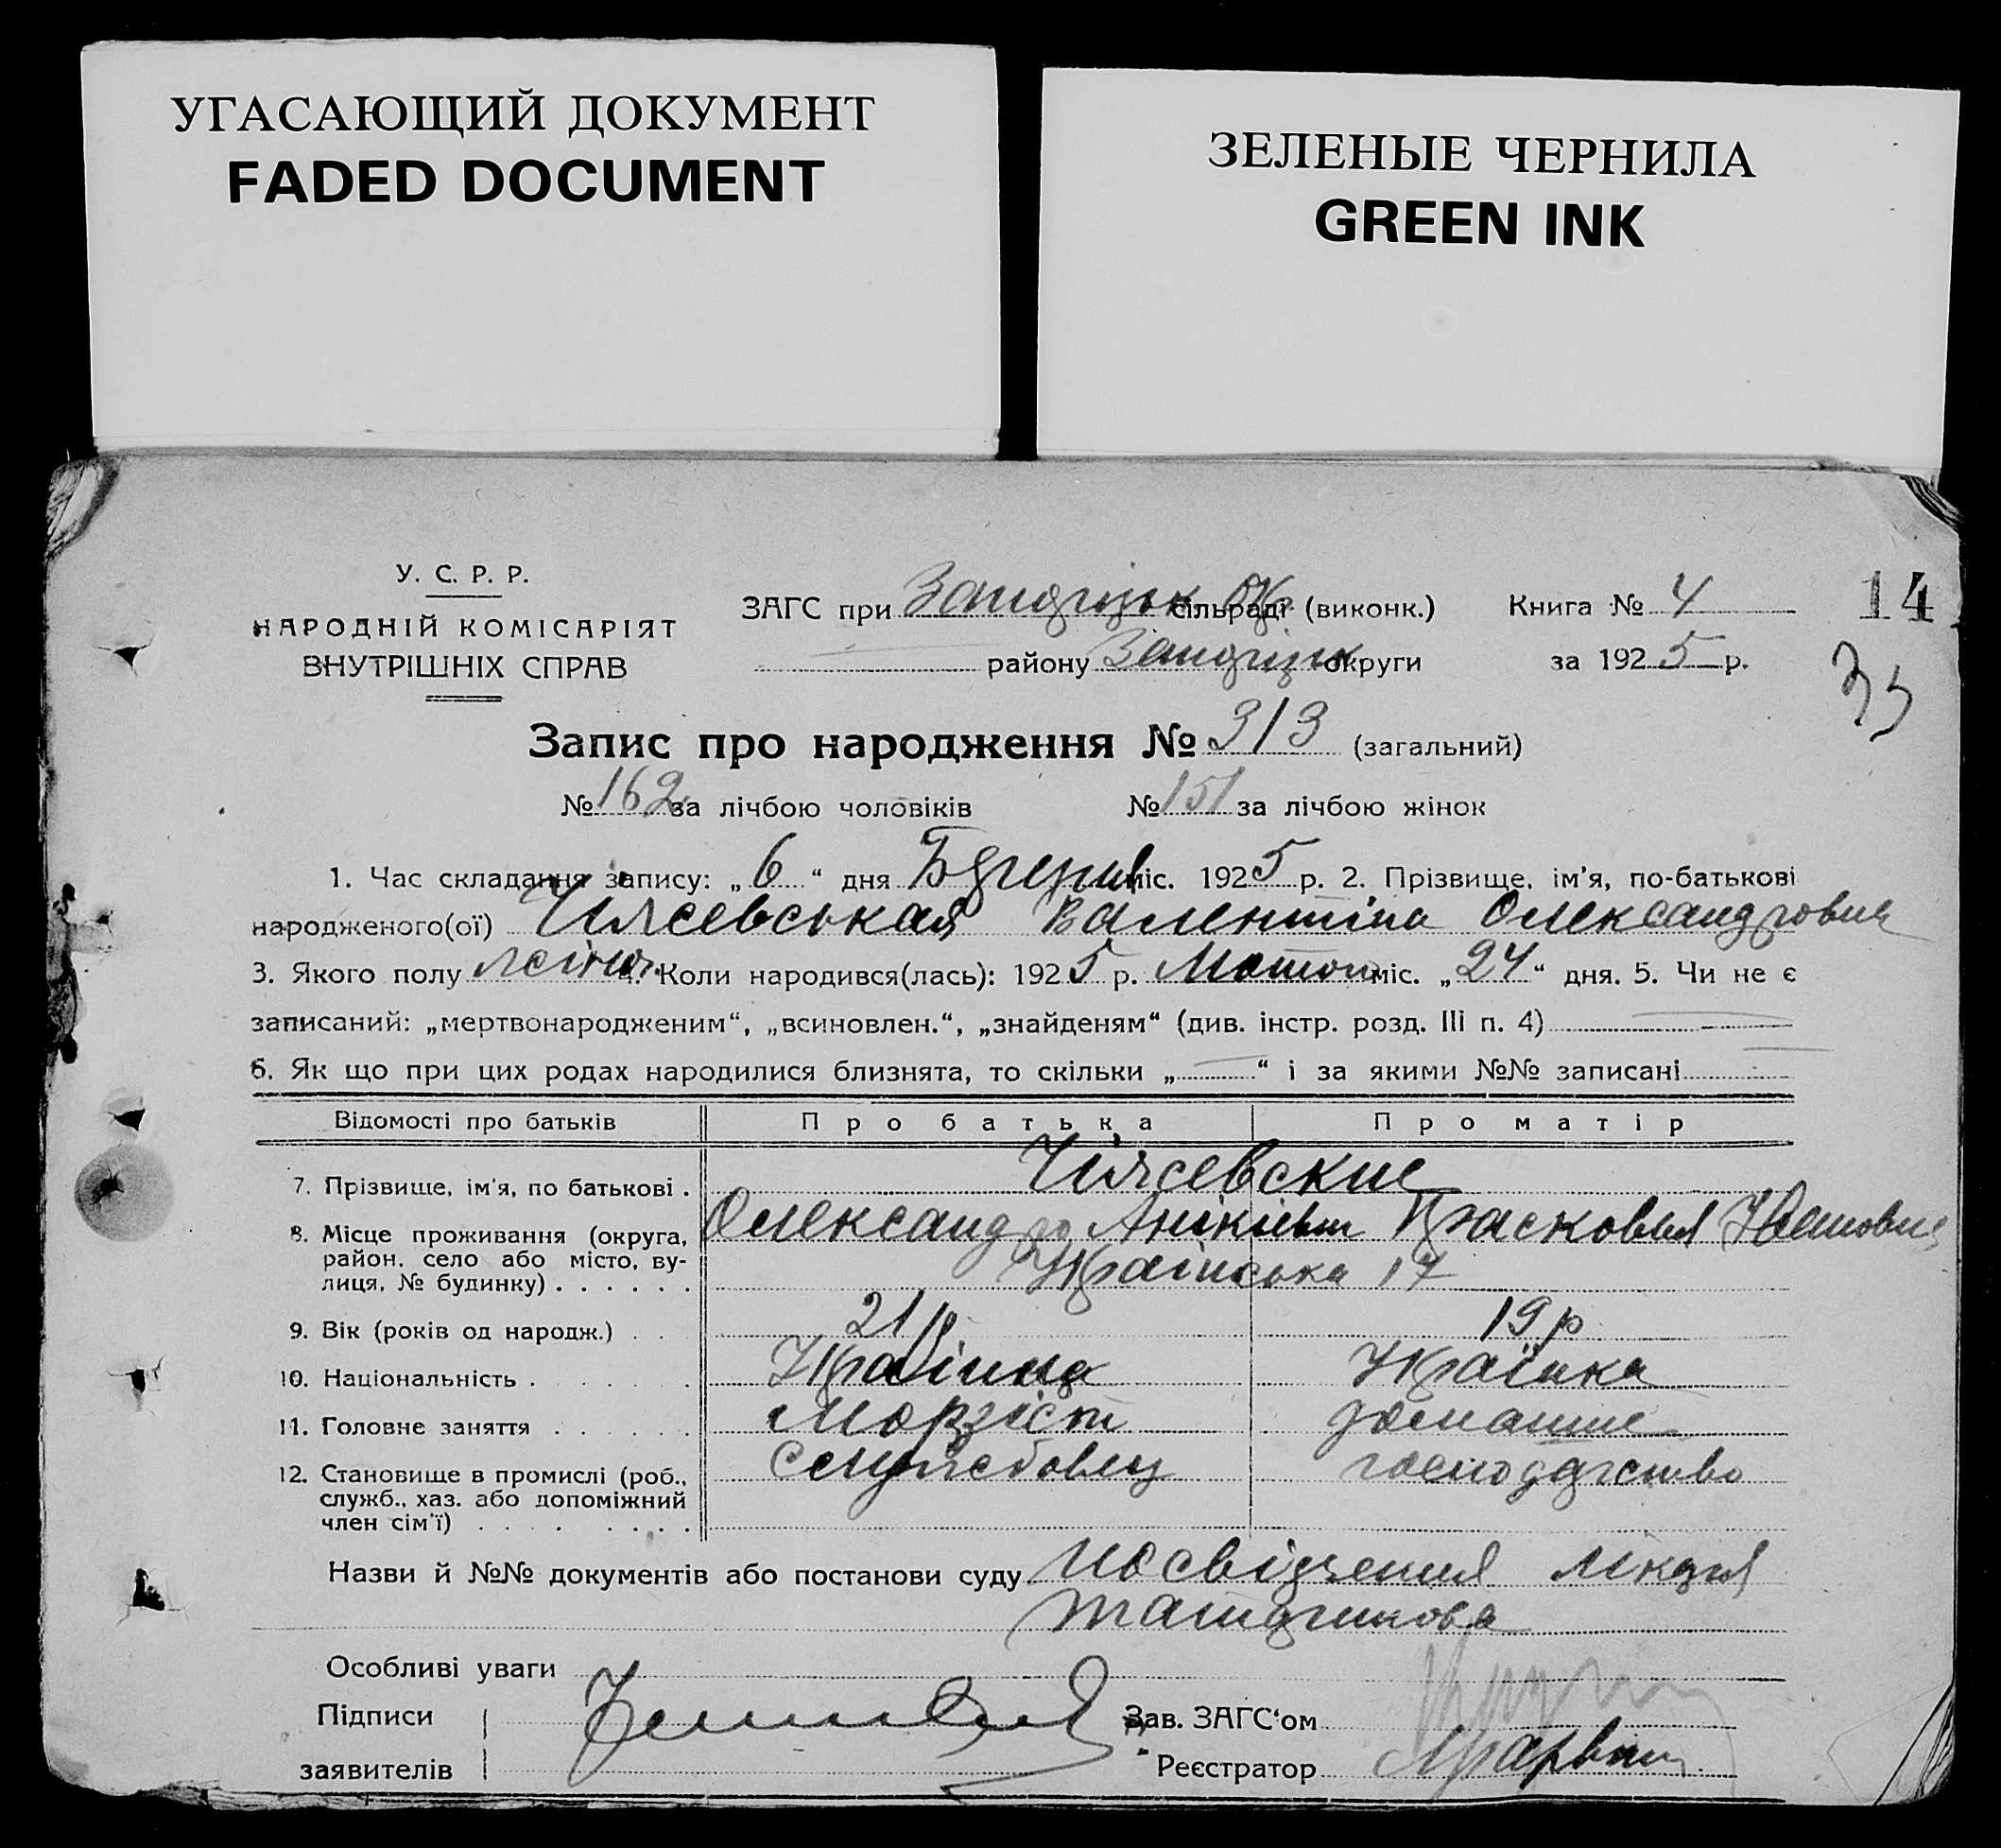 УГАСАЮЩИЙ ДОКУМЕНТ
FADED DOCUMENT
ЗЕЛЕНЫЕ ЧЕРНИЛА
GREEN INK
У. С. Р. Р.
НАРОДНІЙ КОМІСАРІЯТ
ВНУТРІШНІХ СПРАВ
ЗАГС при сільраді (виконк.)
району округи
Книга № 4
за 1925 р.
14
Запис про народження № 313 (загальний)
№ 162 за лічбою чоловіків № 151 за лічбою жінок
1. Час складання запису: „6“ дня міс. 1925 р. 2. Прізвище, ім’я, по-батькові
народженого(ої) Валентіна Олександровна
3. Якого полу 4. Коли народився(лась): 1925 р. Лютого міс. „24“ дня. 5. Чи не є
записаний: „мертвонародженим“, „всиновлен.“, „знайденям“ (див. інстр. розд. III п. 4)
6. Як що при цих родах народилися близнята, то скільки „ “ і за якими №№ записані
Відомості про батьків Про батька Про матір
7. Прізвище, ім’я, по батькові .
8. Місце проживання (округа, район, село або місто, вулиця, № будинку) . . . . . .
Українська 17
9. Вік (років од народж.) . . 21 р 19 р
10. Національність . Українець Українка
11. Головне заняття . . . . . . Морзіст домашнє
12. Становище в промислі (роб., служб., хаз. або допоміжний член сім’ї) господарство
Назви й №№ документів або постанови суду посвідчення лікаря
Особливі уваги
Підписи
заявителів
Зав. ЗАГС‘ом
Реєстратор